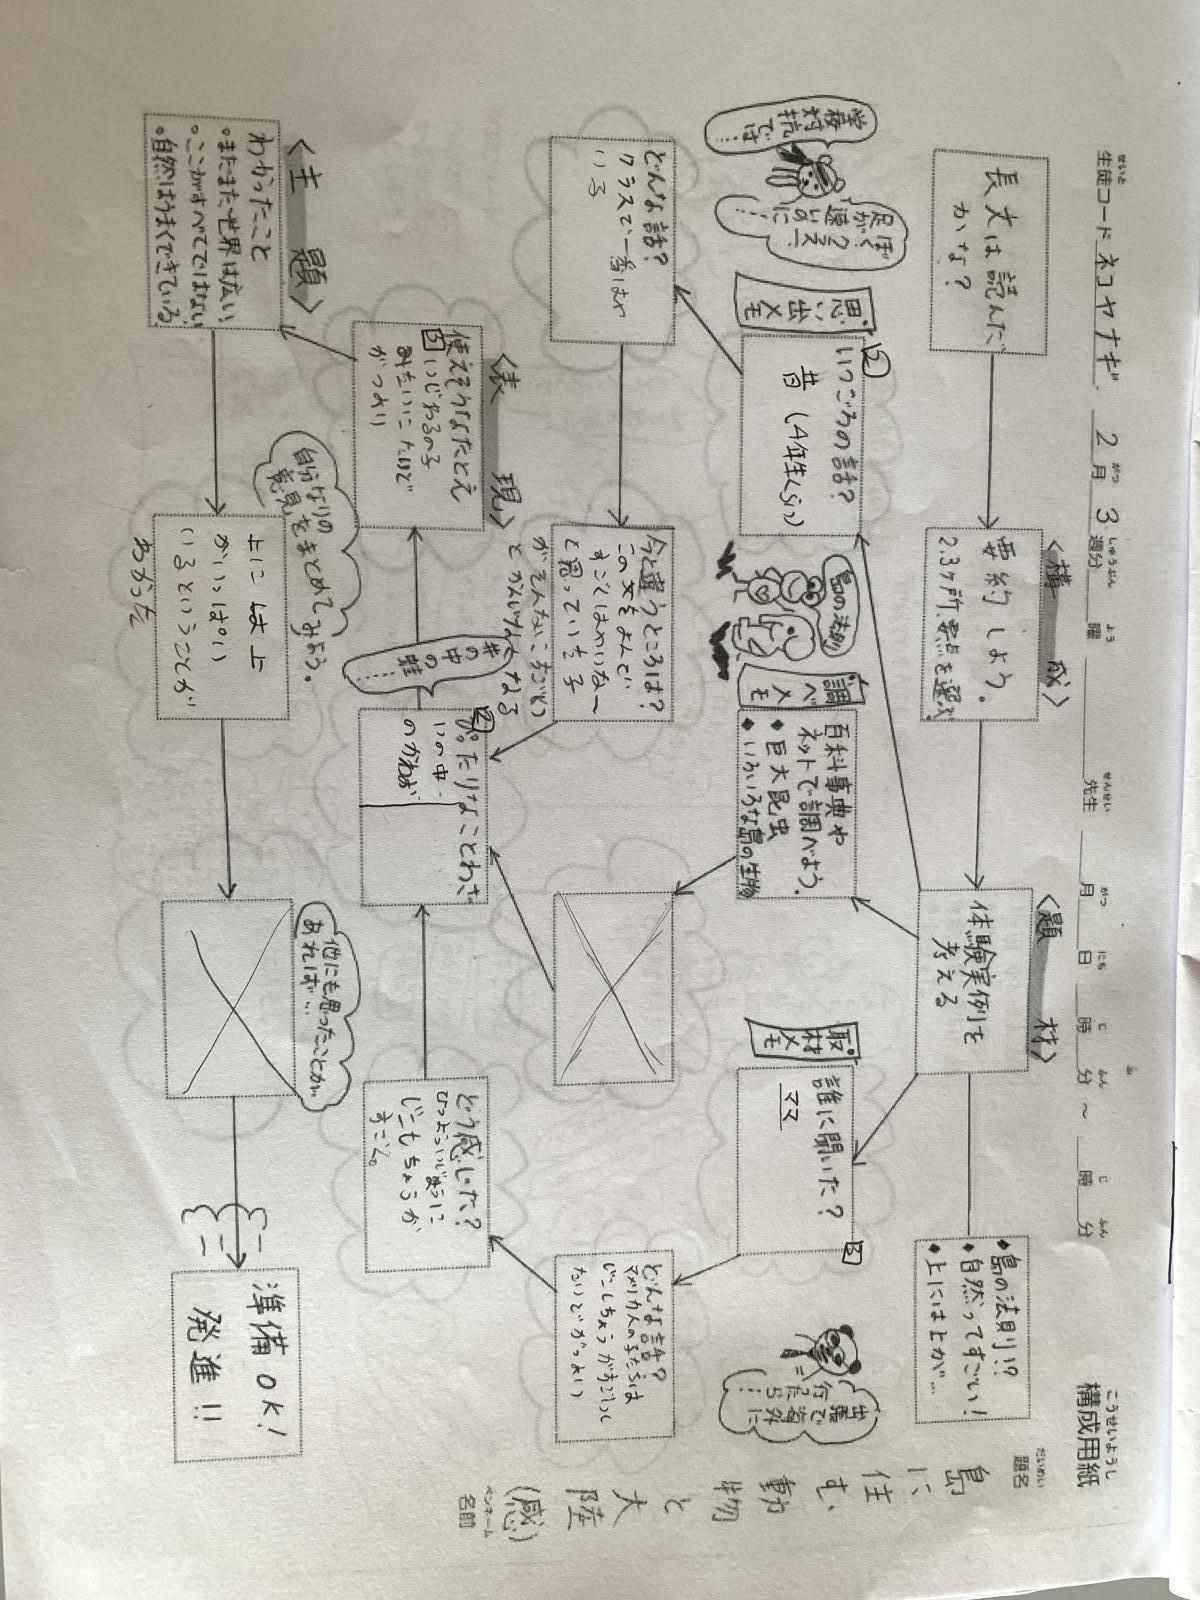 こうせいようし
構成用紙
だいめい
題名
島に住む動物と大陸(感)
ペンネーム
名前
せいと
生徒コード ネコヤナギ 2月 3週分 曜 先生 月 日 時 分 〜 時 分
長文は読んだ
かな?
<構成>
要約しよう。
2.3ヶ所要点を選ぶ
<題材>
体験実例を
考える
◆島の法則!?
◆自然ってすごい!
◆上には上が…
学校
対抗では
……
ぼく
クラス一
足が
速いのに
……
思い出メモ
2
いつごろの話?
昔(4年生くらい)
島の法則
調べメモ
百科事典や
ネットで調べよう。
◆巨大昆虫
◆いろいろな島の生物
取材メモ
誰に聞いた?
ママ
3
出張で海外に
行ったら…!
どんな話?
クラスで一番はや
い子
今と違うところは?
すごくはやいな〜
と思っていた子
どんな話?
アメリカ人の子たちは
じこしちょうがすごくし
ないとがつよい
<表現>
使えそうなたとえ
3
いじわるの子
みたいに
がつよい
井の中の蛙
……
ぴったりなことわざ
いの中
のかわず
どう感じた?
ひつよういじょうに
じこしちょうが
すごい。
<主題>
わかったこと
・まだまだ世界は広い
・ここがすべてではない
・自然はうまくできている
自分なりの
意見をまとめてみよう。
上には上
がいっぱい
いるということが
わかった
他にも思ったことが
あれば…
準備OK!
発進!!